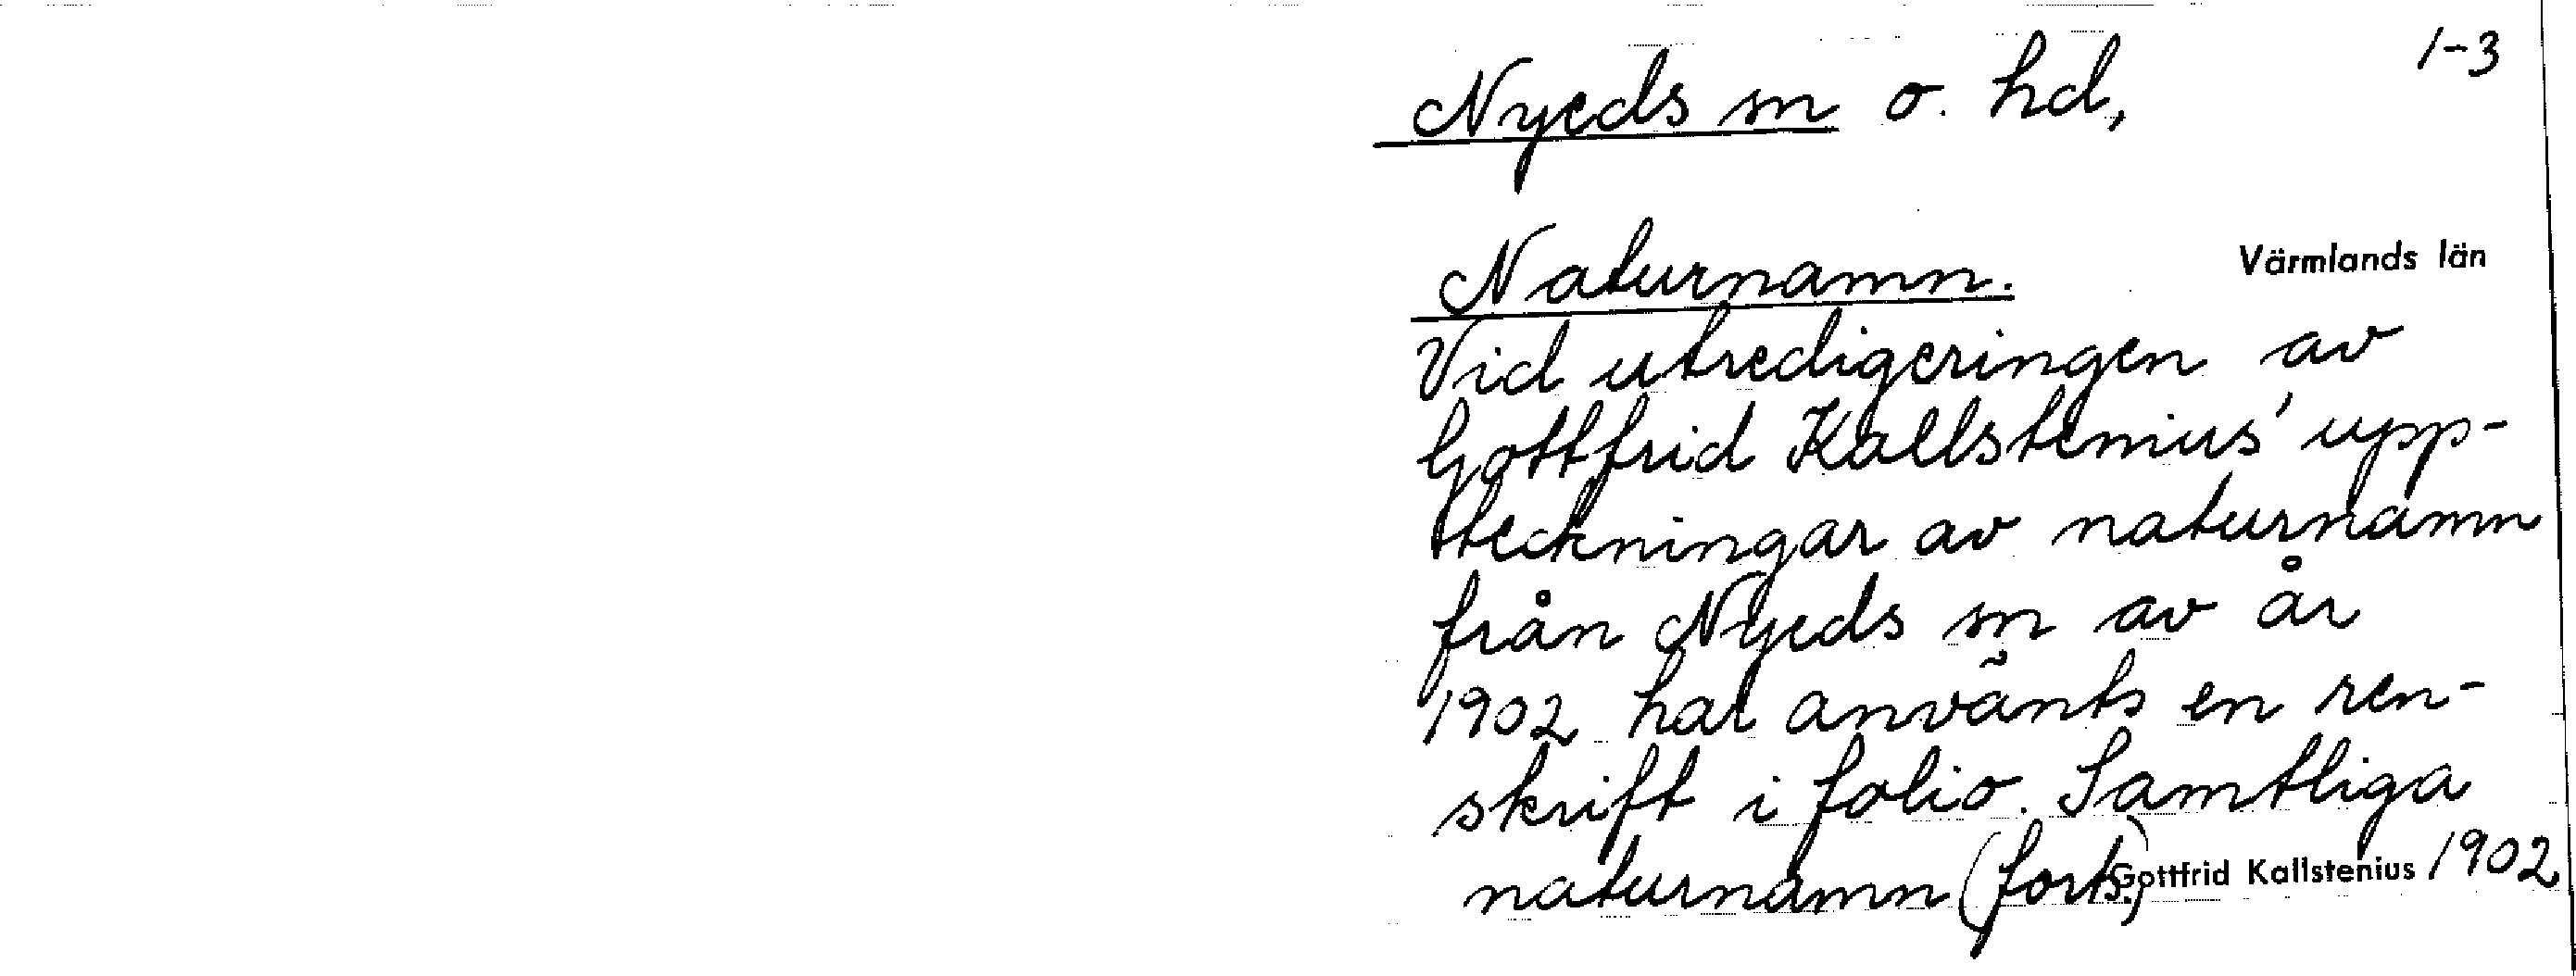 1-3
Nyeds sn o. hd,
Naturnamn.
Värmlands län
Vid utredigeringen av
Gottfrid Kallstenius' upp-
teckningar av naturnamn
från Nyeds sn av år
1902 har använts en ren-
skrift i folio. Samtliga
naturnamn (forts.)
Gottfrid Kallstenius 1902